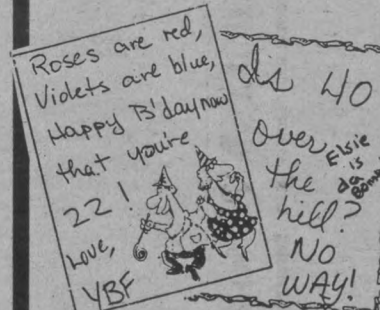 Roses are red,
Violets are blue,
Happy B'day now
that you're
22!
Love,
YBF
Is 40
over
the
hill?
No
WAY!
Elsie
is
da
Bomb